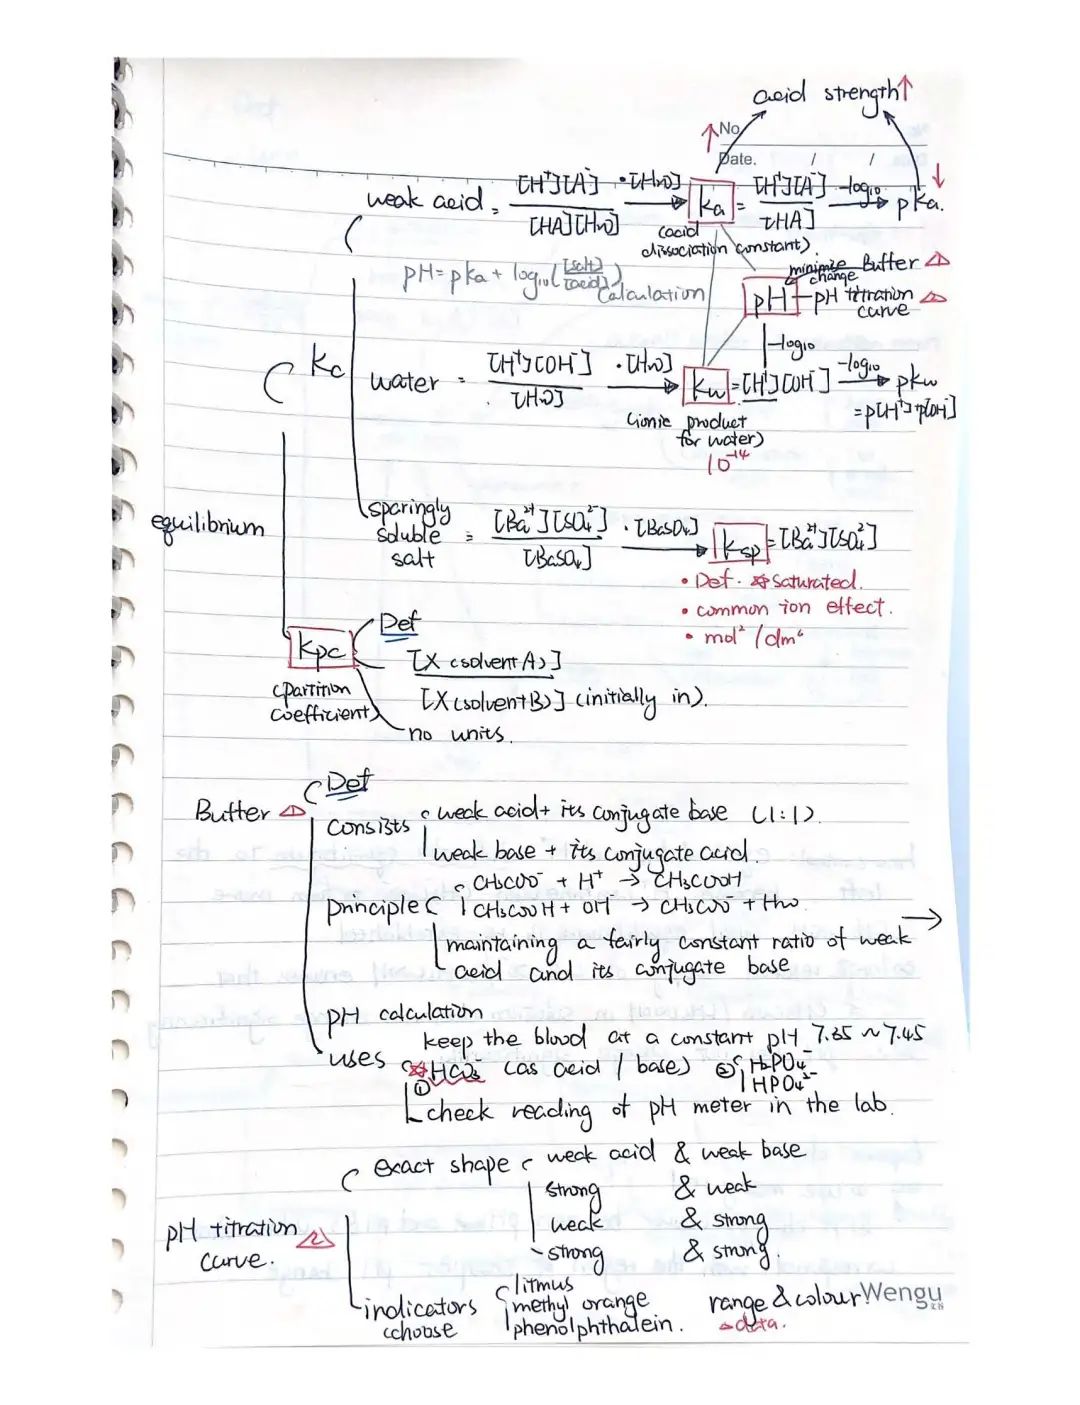 acid strength↑
↑ No.
Date. / /
weak acid = [H⁺][A⁻] / [HA][H₂O] ·[H₂O] → Ka = [H⁺][A⁻] / [HA] -log₁₀ → pKa. ↓
(acid dissociation constant)
pH = pKa + log₁₀([salt]/[acid]) Calculation
minimize change Buffer △1
pH - pH titration curve △2
-log₁₀
Kc
water = [H⁺][OH⁻] / [H₂O] ·[H₂O] → Kw = [H⁺][OH⁻] -log₁₀ → pKw
= p[H⁺]+p[OH⁻]
(ionic product
for water)
10⁻¹⁴
equilibrium
sparingly
soluble
salt = [Ba²⁺][SO₄²⁻] / [BaSO₄] ·[BaSO₄] → Ksp = [Ba²⁺][SO₄²⁻]
• Def. ☆ saturated.
• common ion effect.
• mol²/dm⁶
Kpc
(partition
coefficient)
Def
[X (solvent A)]
[X (solvent B)] (initially in).
no units.
Buffer △1
Def
consists
weak acid + its conjugate base (1:1).
weak base + its conjugate acid.
principle
CH₃COO⁻ + H⁺ → CH₃COOH
CH₃COOH + OH⁻ → CH₃COO⁻ + H₂O
maintaining a fairly constant ratio of weak →
acid and its conjugate base
pH calculation
uses
keep the blood at a constant pH 7.35 ~ 7.45
☆ ① HCO₃⁻ (as acid / base) ② H₂PO₄⁻
HPO₄²⁻
check reading of pH meter in the lab.
pH titration △2
curve.
exact shape
weak acid & weak base
strong & weak
weak & strong
strong & strong.
indicators
(choose
litmus
methyl orange
phenolphthalein.
range & colour
△ data.
Wengu